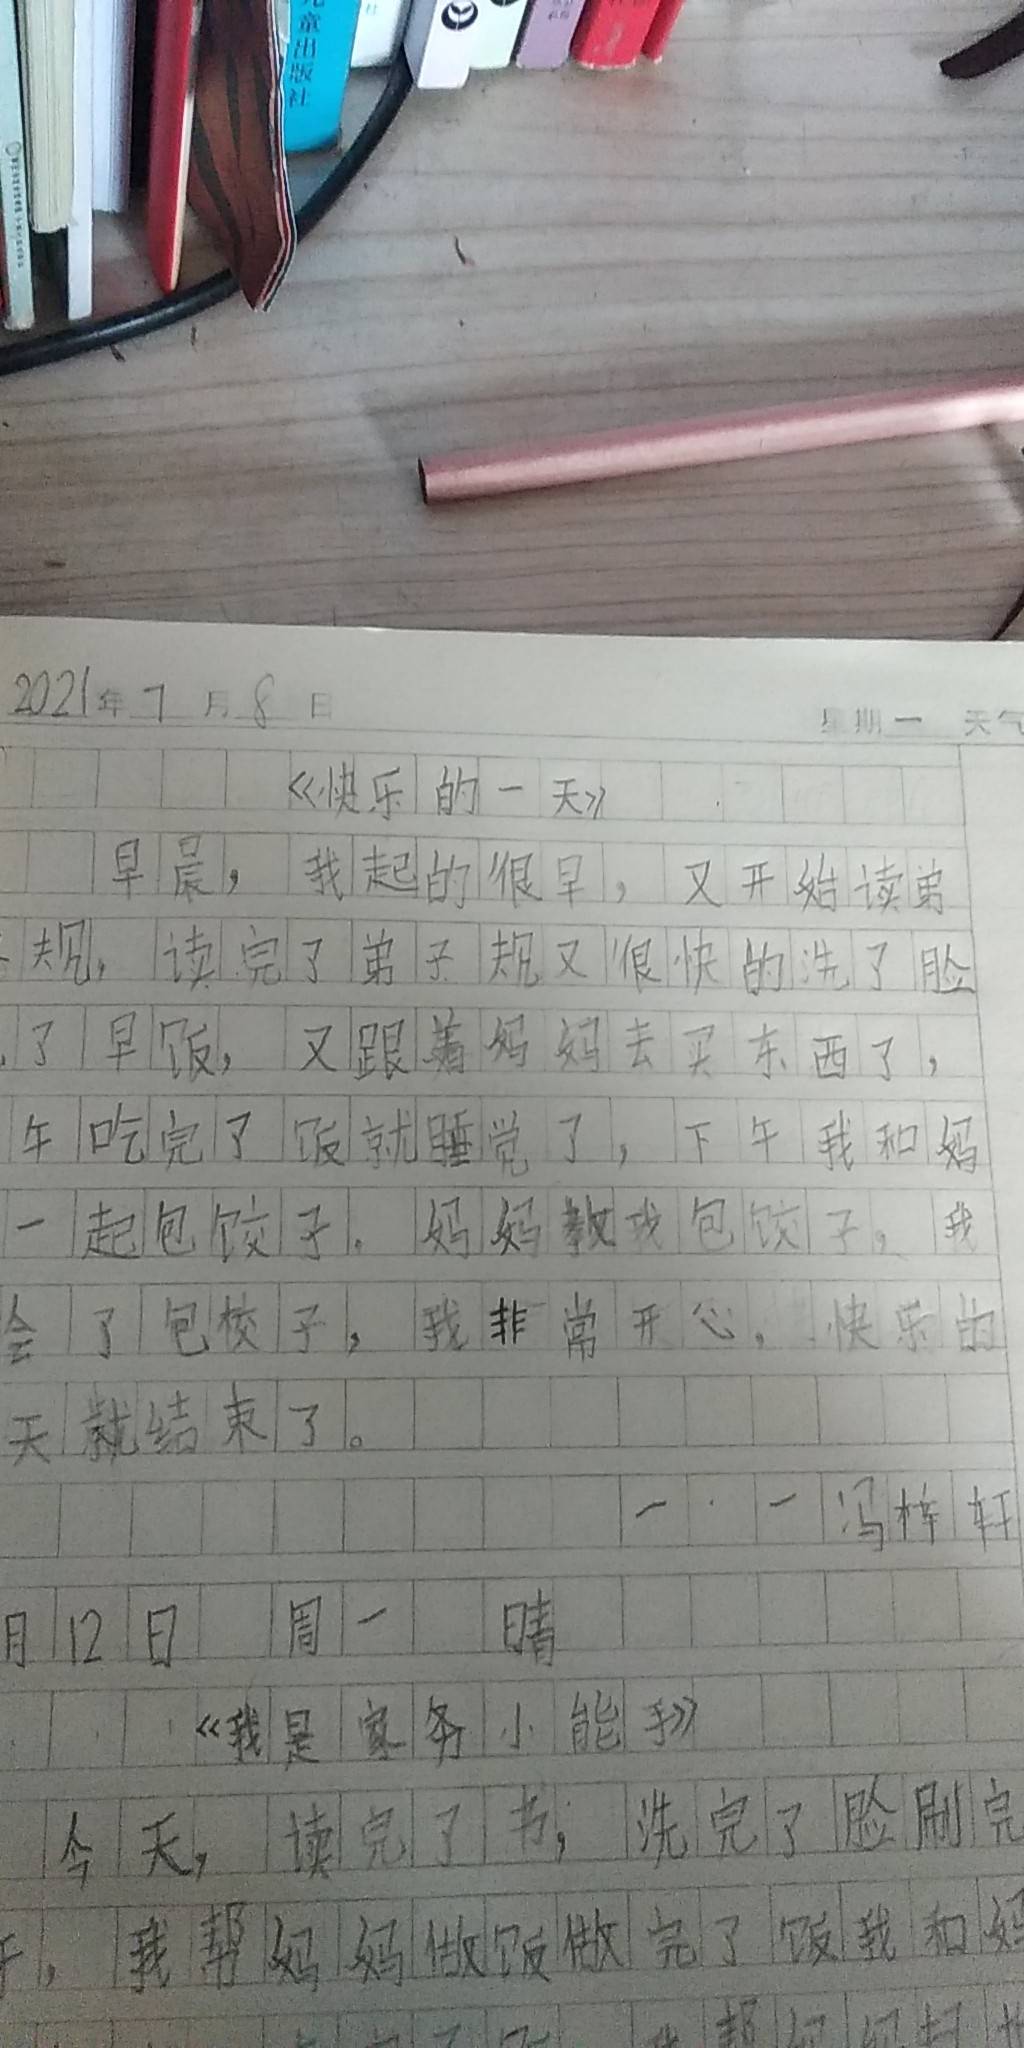 儿童出版社
社
2021年7月8日 星期一 天气
《快乐的一天》
早晨，我起的很早，又开始读弟
规，读完了弟子规又很快的洗了脸
了早饭，又跟着妈妈去买东西了，
午吃完了饭就睡觉了，下午我和妈
一起包饺子。妈妈教我包饺子，我
会了包校子，我非常开心，快乐的
天就结束了。
一·一冯梓轩
月12日 周一 晴
《我是家务小能手》
今天，读完了书，洗完了脸刷完
牙，我帮妈妈做饭做完了饭我和妈